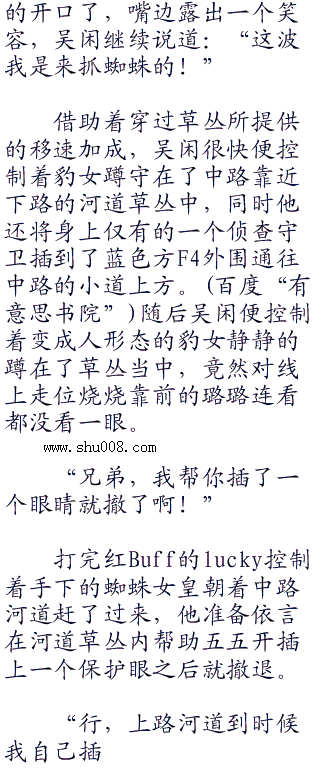 的开口了，嘴边露出一个笑
容，吴闲继续说道：“这波
我是来抓蜘蛛的！”
借助着穿过草丛所提供
的移速加成，吴闲很快便控
制着豹女蹲守在了中路靠近
下路的河道草丛中，同时他
还将身上仅有的一个侦查守
卫插到了蓝色方F4外围通往
中路的小道上方。(百度“有
意思书院”)随后吴闲便控制
着变成人形态的豹女静静的
蹲在了草丛当中，竟然对线
上走位烧烧靠前的璐璐连看
都没看一眼。
www.shu008.com
“兄弟，我帮你插了一
个眼睛就撤了啊！”
打完红Buff的lucky控制
着手下的蜘蛛女皇朝着中路
河道赶了过来，他准备依言
在河道草丛内帮助五五开插
上一个保护眼之后就撤退。
“行，上路河道到时候
我自己插